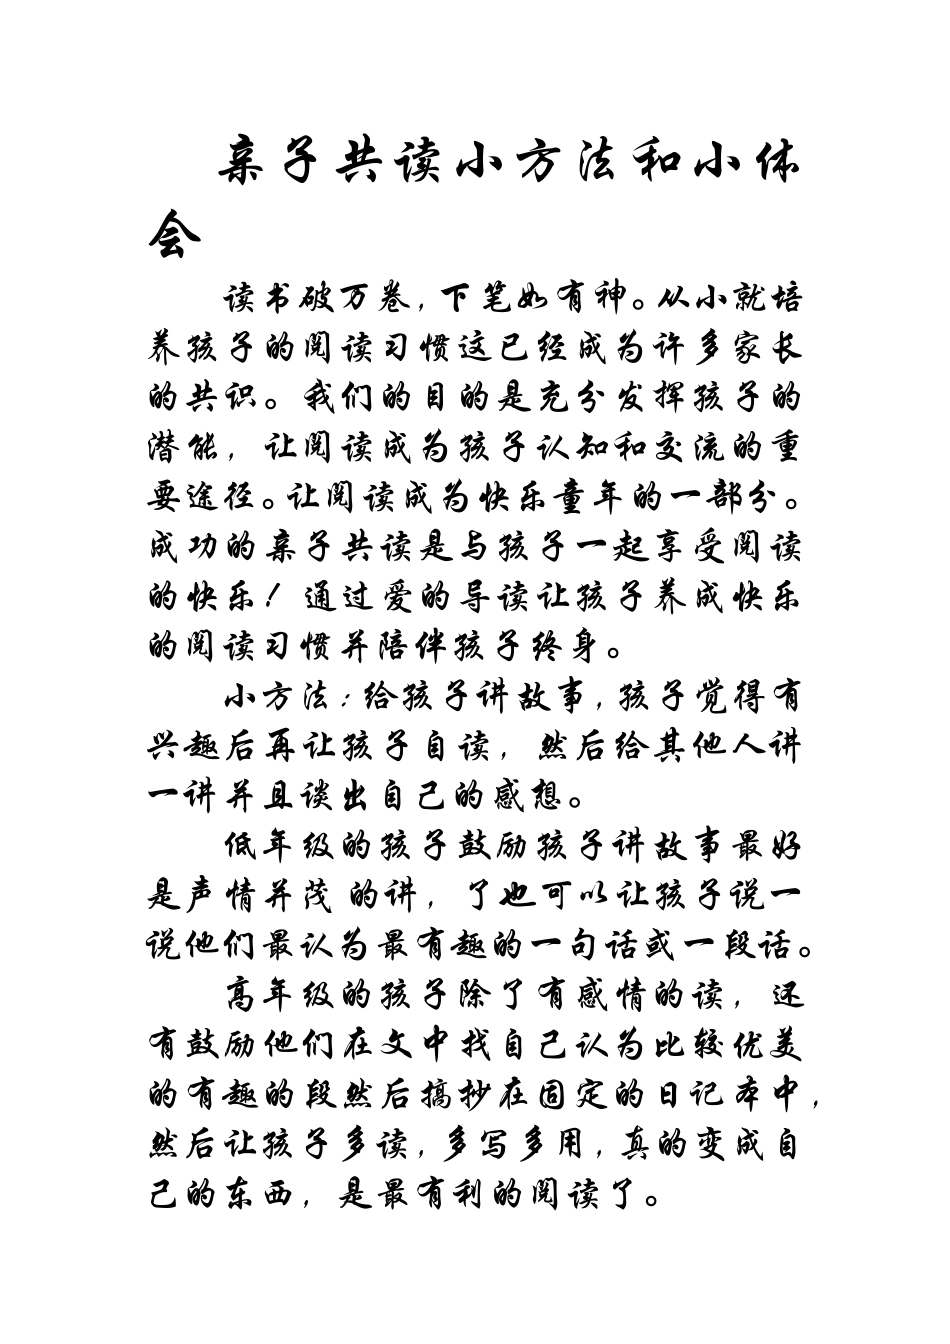 亲子共读小方法和小体
会
读书破万卷,下笔如有神。从小就培
养孩子的阅读习惯这已经成为许多家长
的共识。我们的目的是充分发挥孩子的
潜能，让阅读成为孩子认知和交流的重
要途径。让阅读成为快乐童年的一部分。
成功的亲子共读是与孩子一起享受阅读
的快乐！通过爱的导读让孩子养成快乐
的阅读习惯并陪伴孩子终身。
小方法:给孩子讲故事,孩子觉得有
兴趣后再让孩子自读，然后给其他人讲
一讲并且谈出自己的感想。
低年级的孩子鼓励孩子讲故事最好
是声情并茂 的讲，了也可以让孩子说一
说他们最认为最有趣的一句话或一段话。
高年级的孩子除了有感情的读，还
有鼓励他们在文中找自己认为比较优美
的有趣的段然后搞抄在固定的日记本中，
然后让孩子多读,多写多用,真的变成自
己的东西，是最有利的阅读了。